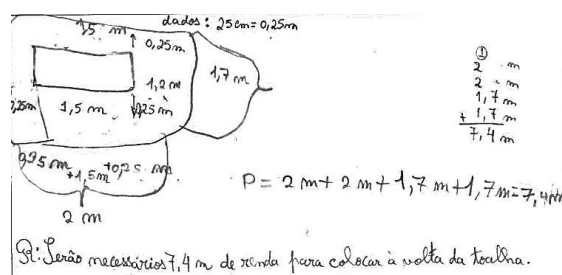 dados: 25cm=0,25m
1,5 m
0,25m
1,2m
1,7m
0,25m
1,5 m
0,25m
0,25m
+1,5m
+0,25 m
2 m
①
2 m
2 m
1,7 m
+ 1,7 m
7,4 m
P = 2 m + 2 m + 1,7 m + 1,7 m = 7,4 m
R: Serão necessários 7,4 m de renda para colocar à volta da toalha.